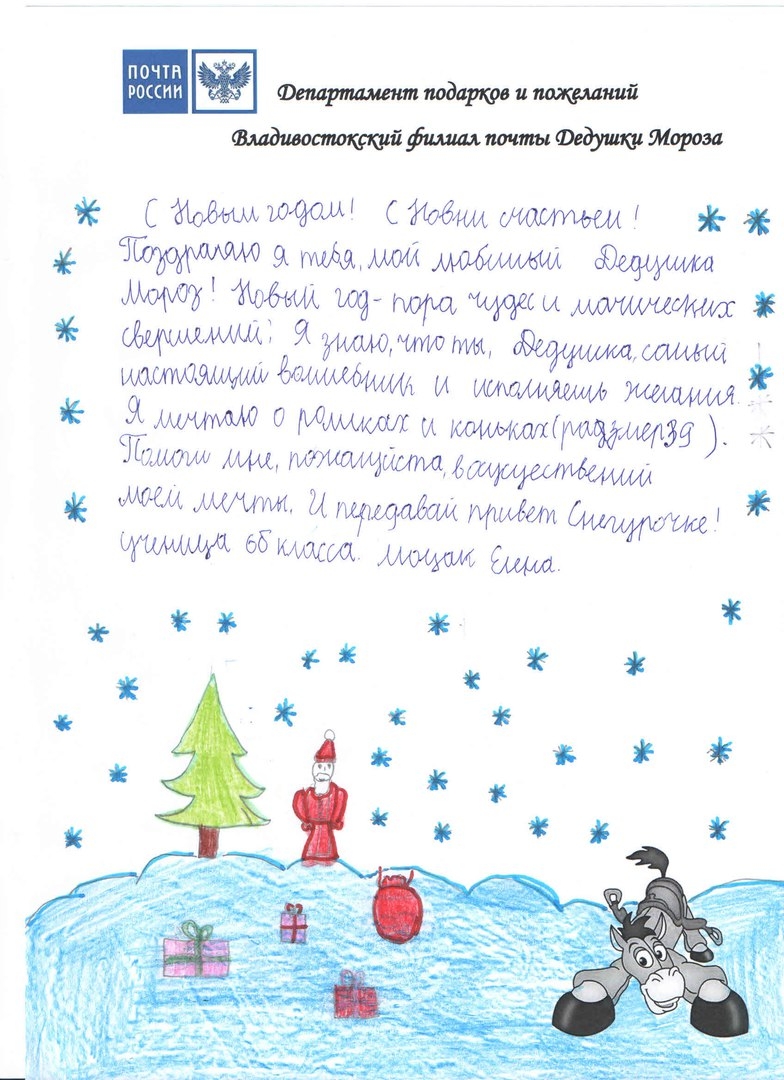 ПОЧТА
РОССИИ
Департамент подарков и пожеланий
Владивостокский филиал почты Дедушки Мороза
С Новым годом! С Новни счастьем!
Поздралаю я тебя, мой любимый Дедушка
Мороз! Новый год - пора чудес и магических
свершений! Я знаю, что ты, Дедушка, самый
настоящий волшебник и исполняешь желания.
Я мечтаю о роликах и коньках (раззмер 39).
Помоги мне, пожалуйста, в осуществений
моей мечты. И передавай привет Снегурочке!
ученица 6б класса. Моцак Елена.